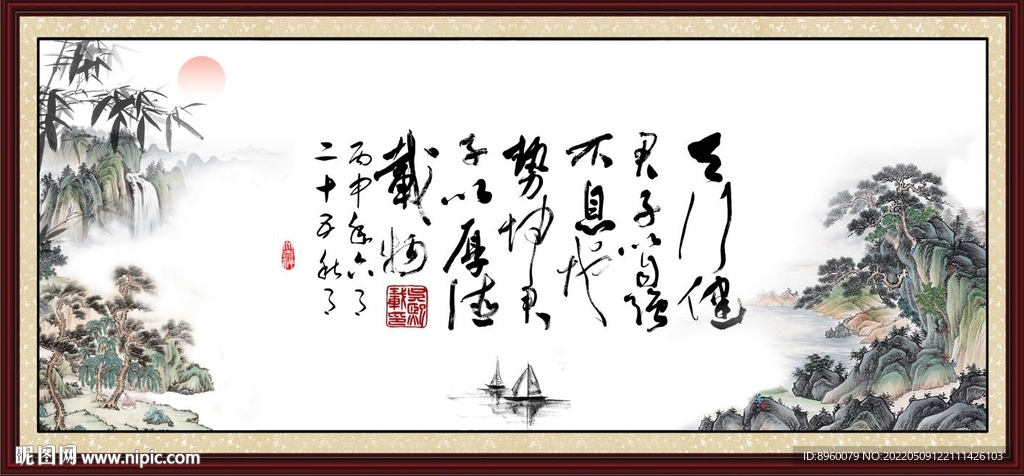 天行健
君子以自強
不息地
勢坤君
子以厚德
載物
丙申年六月
二十五
昵图网 www.nipic.com
ID:8960079 NO:20220509122111426103